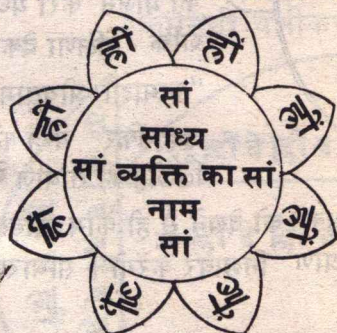 ह्रीं ह्रीं
ह्रीं ह्रीं
ह्रीं ह्रीं
ह्रीं ह्रीं
सां
साध्य
सां व्यक्ति का सां
नाम
सां